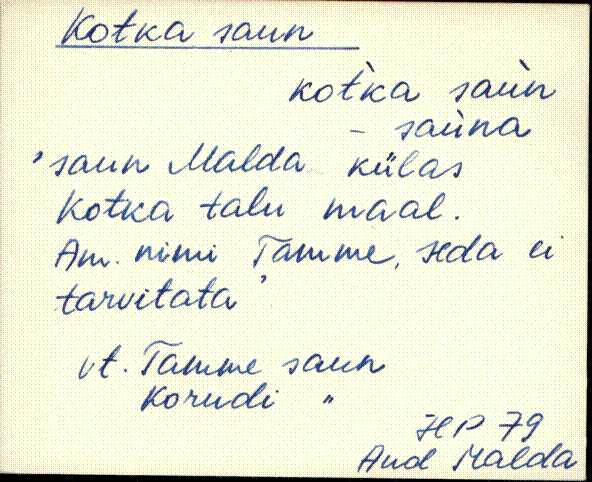 Kotka saun
kot̀ka saùn
– saùna
'saun Malda külas
Kotka talu maal.
Am. nimi Tamme, seda ei
tarvitata'
vt. Tamme saun
Korudi "
HP 79
Aud Malda